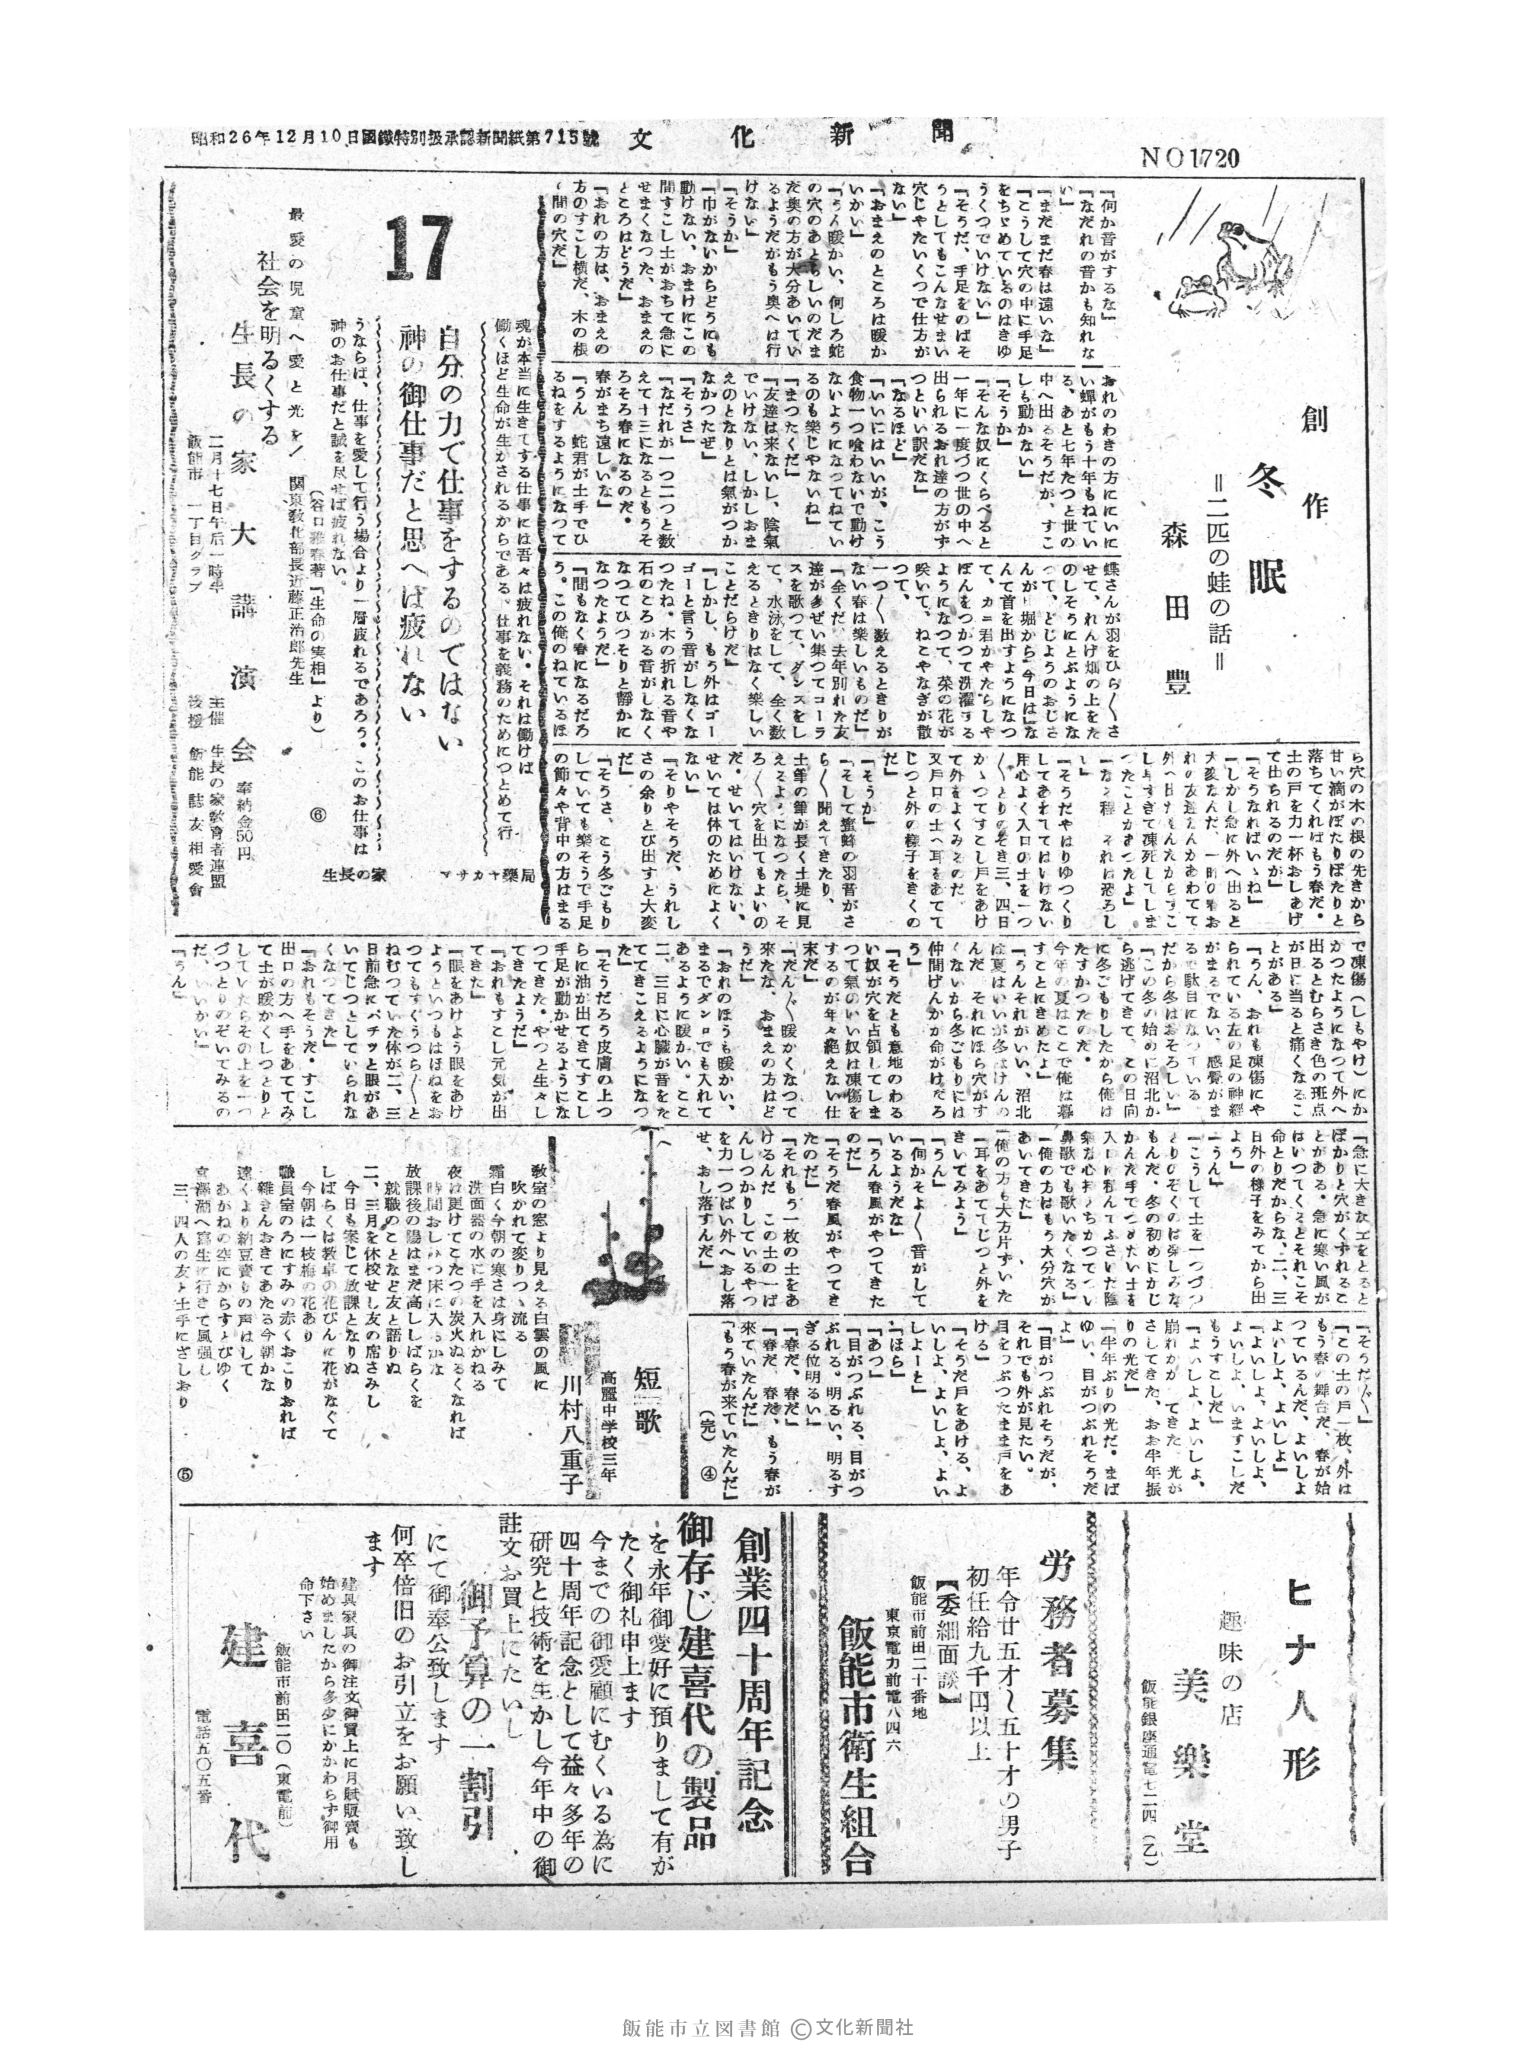 昭和26年12月10日國鐵特別扱承認新聞紙第715號
文化新聞
NO1720
創作
冬眠
＝二匹の蛙の話＝
森田豊
『何か音がするな』
『なだれの音かも知れない』
『まだまだ春は遠いな』
『こうして穴の中に手足をちゞめているのはきゆうくつでいけない』
『そうだ、手足をのばそうとしてもこんなせまい穴じやたいくつで仕方がない』
『おまえのところは暖かいかい』
『うん暖かい、何しろ蛇の穴のあとらしいのだまだ奥の方が大分あいているようだがもう奥へは行けない』
『そうか』
『巾がないからどうにも動けない、おまけにこの間すこし土がおちて急にせまくなつた、おまえのところはどうだ』
『おれの方は、おまえの方のすこし横だ、木の根の間の穴だ』
おれのわきの方ににいにい蟬がもう十年もねている、あと七年たつと世の中へ出るそうだが、すこしも動かない』
『そうか』
『そんな奴にくらべると一年に一度づつ世の中へ出られるおれ達の方がずつといい訳だな』
『なるほど』
『いいにはいいが、こう食物一つ喰わないで動けないようになつてねているのも樂じやないね』
『まつたくだ』
『友達は来ないし、陰氣でいけない、しかしおまえのとなりとは氣がつかなかつたぜ』
『そうさ』
『なだれが一つ二つと数えて十三になるともうそろそろ春になるのだ。春がまち遠しいな』
『うん、蛇君が土手でひるねをするようになつて
蝶さんが羽をひら〳〵させて、れんげ畑の上をたのしそうにとぶようになつて、どじようのおじさんが、堀から今日はなんて首を出すようになつて、カニ君がやたらしやぼんをつかつて洗濯するようになつて、菜の花が咲いて、ねこやなぎが散つて、
一つ〳〵数えるときりがない春は楽しいものだ』
『全くだ、去年別れた友達が多ぜい集つてコーラスを歌つて、ダンスをして、水泳をして、全く数えるときりはなく楽しいことだらけだ』
『しかし、もう外はゴーゴーと言う音がしなくなつたね。木の折れる音や石のころがる音がしなくなつてひつそりと靜かになつたようだ』
『間もなく春になるだろう。この俺のねているほ
ら穴の木の根の先きから甘い滴がぽたりぽたりと落ちてくればもう春だ。土の戸を力一杯おしあげて出られるのだが』
『そうなればいゝね』
『しかし急に外へ出ると大変なんだ、
『そうだやはりゆつくりしてあわててはいけない
て外をよくみるのだ
又戸口の土へ耳をあててじつと外の様子をきくのだ』
『そうか』
『そして蜜蜂の羽音がさら〳〵聞えてきたり、土筆の筆が長く土堤に見えるようになつたら、そろ〳〵穴を出てもよいのだ。せいてはいけない、せいては体のためによくない』
『そりやそうだ、うれしさの余りとび出すと大変だ』
『そうさ、こう冬ごもりしていても樂そうで手足の節々や背中の方はまる
で凍傷(しもやけ)にかかつたようになつて外へ出るとむらさき色の斑点が日に当ると痛くなることがある』
『うん、おれも凍傷にやられている左の足の神経がまるでない、感覺がまるで駄目になつている、だから冬はおそろしい』
『この冬の始めに沼北から逃げてきて、この日向に冬ごもりしたから俺はたすかつたのだ。今年の夏はここで俺は暮すことにきめたよ』
『うんそれがいい、沼北は夏はいいが冬はけんのんだ
『そうだとも意地のわるい奴が穴を占領してしまつて氣のいい奴は凍傷をするのが年々絶えない仕末だ』
『だん〳〵暖かくなつて来たな、おまえの方はどうだ』
『おれのほうも暖かい、まるでダンロでも入れてあるように暖かい。ここ二、三日に心臓が音をたててきこえるようになつた』
『そうだろう皮膚の上つらに油が出てきてすこし手足が動かせるようになつてきた。やつと生々してきたようだ』
『おれもすこし元気が出てきた』
『眼をあけよう眼をあけようといつもはほねをおつてもすぐうつら〳〵とねむつていた体が二、三日前急にパチッと眼があいてじつとしていられなくなつてきた』
『おれもそうだ。すこし出口の方へ手をあててみて土が暖かくしつとりとしていたらその上を一つづつとりのぞいてみるのだ、いいかい』
『うん』
『急に大きな土をとるとぽかりと穴がくずれることがある。急に寒い風がはいつてくるとそれこそ命とりだからな、二、三日外の様子をみてから出よう』
『うん』
『耳をあててじつと外をきいてみよう』
『うん』
『何かそよ〳〵音がしているようだな』
『うん春風がやつてきたのだ』
『そうだ春風がやつてきたのだ』
『それもう一枚の土をあけるんだ この土の一ばんしつかりしているやつを力一つぱい外へおし落せ、おし落すんだ』
『そうだ〳〵』
『この土の戸一枚、外はもう春の舞台だ、春が始つているんだ、よいしよよいしよ、よいしよ』
『よいしよ、よいしよ、よいしよ、いますこしだもうすこしだ』
『よいしよ、よいしよ、崩れかゝてきた、光がさしてきた、おお半年振りの光だ』
『半年ぶりの光だ。まばゆい、目がつぶれそうだよ』
『目がつぶれそうだが、それでも外が見たい。目をつぶつたまま戸をあける』
『そうだ戸をあける、よいしよ、よいしよ、よいしよーと』
『ほら』
『あつ』
『目がつぶれる、目がつぶれる。明るい、明るすぎる位明るい』
『春だ、春だ』
『春だ、春だ、もう春が来ていたんだ』
『もう春が来ていたんだ』
(完) ④
17
魂が本当に生きてする仕事には吾々は疲れない。それは働けば働くほど生命が生かされるからである。仕事を義務のためにつとめて行
自分の力で仕事をするのではない
神の御仕事だと思へば疲れない
うならば、仕事を愛して行う場合より一層疲れるであろう。このお仕事は神のお仕事だと誠を尽せば疲れない。
(谷口雅春著『生命の実相』より) ⑥
生長の家 マサカヤ藥局
最愛の児童へ愛と光を！ 関東敎化部長近藤正治郎先生
社会を明るくする
生長の家大講演会 奉納金50円
二月十七日午后一時半
飯能市 一丁目クラブ
主催 生長の家敎育者連盟
後援 飯能誌友相愛會
短歌
高麗中学校三年
川村八重子
敎室の窓より見える白雲の風に吹かれて変りつゝ流る
霜白く今朝の寒さは身にしみて洗面器の水に手を入れかねる
夜は更けてこたつの炭火ぬるくなれば時間おしみつ床に入るかな
放課後の陽はまだ高ししばらくを就職のことなど友と語りぬ
二、三月を休校せし友の席さみし今日も案じて放課となりぬ
しばらくは敎卓の花びんに花がなくて今朝は一枝梅の花あり
職員室のろにすみの赤くおこりおれば雜きんおきてあたる今朝かな
遠くより納豆賣りの声はしてあかねの空にからすとびゆく
三、四人の友と土手にざしおり ⑤
ヒナ人形
趣味の店
美樂堂
飯能銀座通電七二四(乙)
労務者募集
年令廿五才～五十才の男子
初任給九千円以上
【委細面談】
飯能市前田二十番地
東京電力前電八四六
飯能市衛生組合
創業四十周年記念
御存じ建喜代の製品
を永年御愛好に預りまして有がたく御礼申上ます
今までの御愛顧にむくいる為に四十周年記念として益々多年の研究と技術を生かし今年中の御註文お買上にたいし
御予算の一割引
にて御奉公致します
何卒倍旧のお引立をお願い致します
建具家具の御注文御買上に月賦販賣も始めましたから多少にかかわらず御用命下さい
飯能市前田二〇(東電前)
建喜代
電話五〇五番
飯能市立図書館 ©文化新聞社